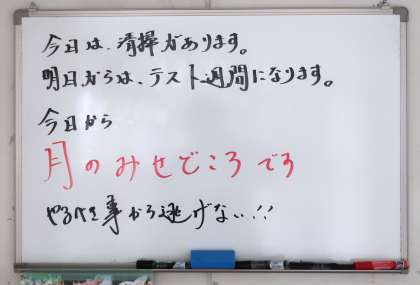 今日は、清掃があります。
明日からは、テスト週間になります。
今日から
月のみせどころです
やるべき事から逃げない!!